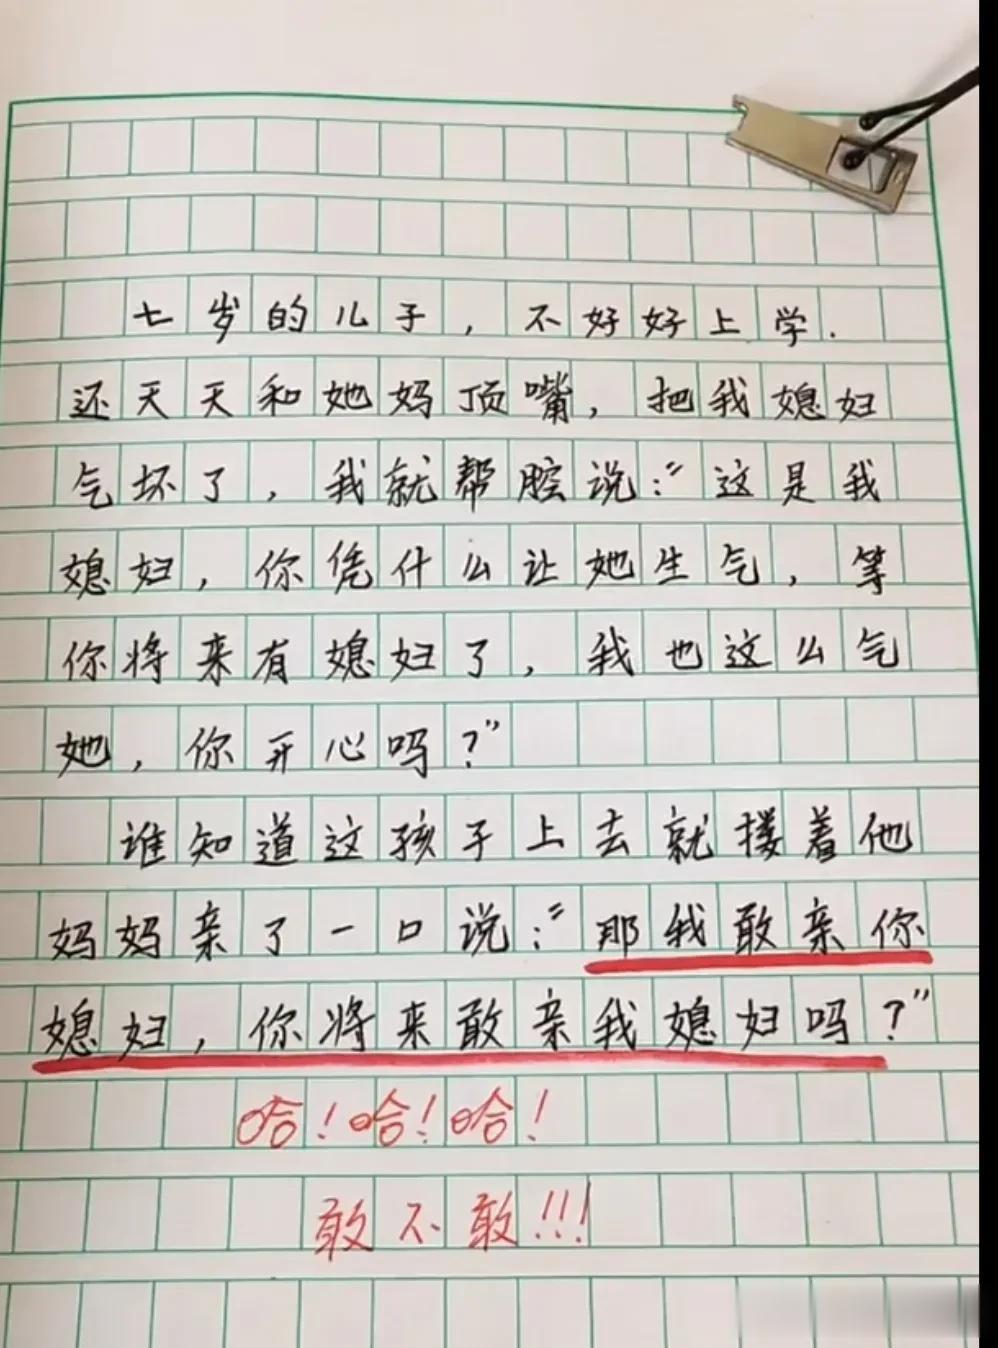 七岁的儿子，不好好上学.
还天天和她妈顶嘴，把我媳妇
气坏了，我就帮腔说：“这是我
媳妇，你凭什么让她生气，等
你将来有媳妇了，我也这么气
她，你开心吗？”
谁知道这孩子上去就搂着他
妈妈亲了一口说：“那我敢亲你
媳妇，你将来敢亲我媳妇吗？”
哈！哈！哈！
敢不敢!!!